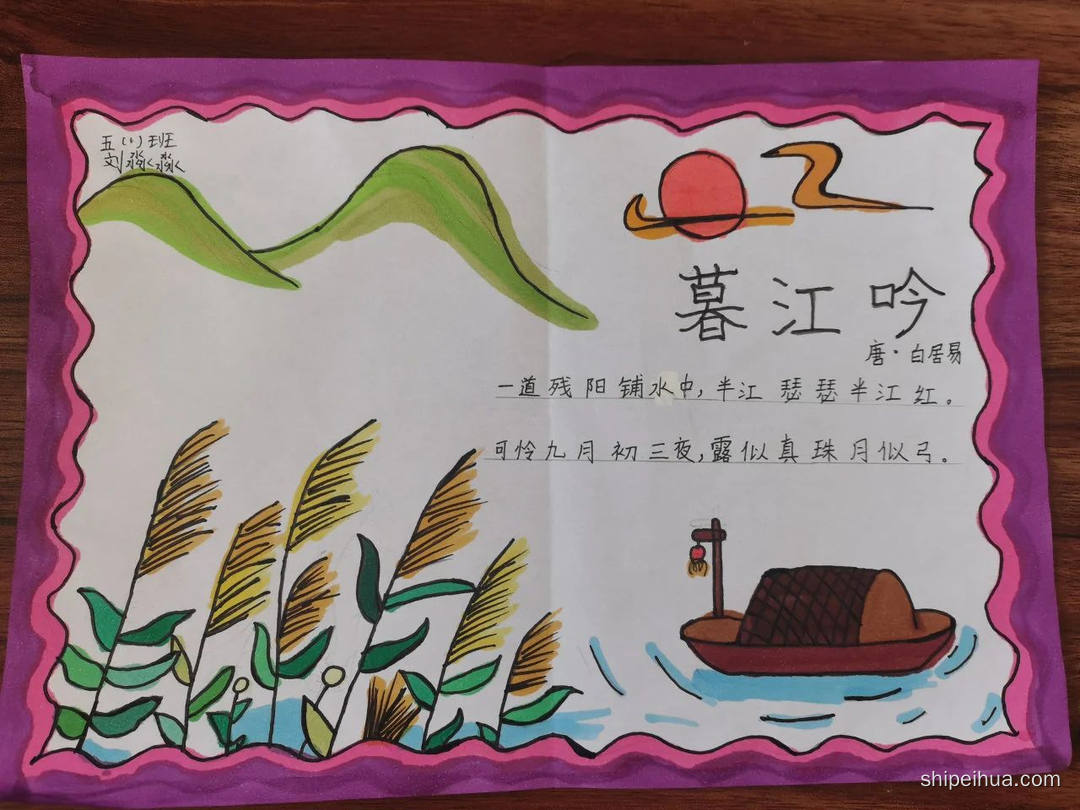 五(1)班
刘淼淼
暮江吟
唐·白居易
一道残阳铺水中,半江瑟瑟半江红。
可怜九月初三夜,露似真珠月似弓。
shipeihua.com